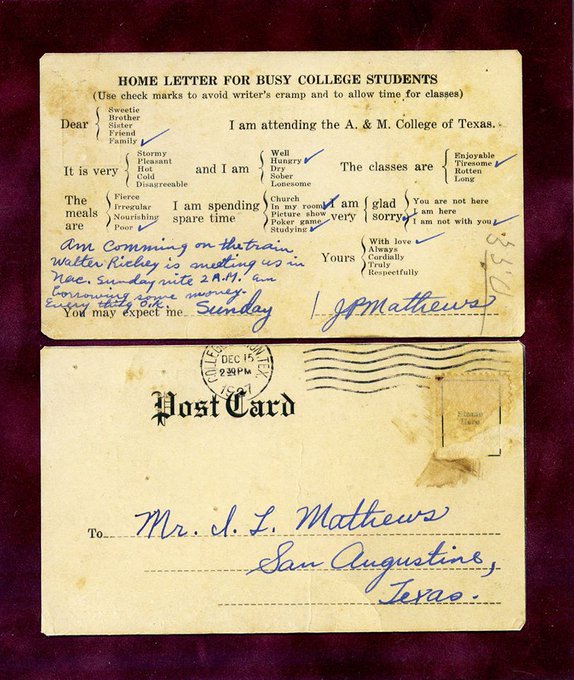 HOME LETTER FOR BUSY COLLEGE STUDENTS
(Use check marks to avoid writer's cramp and to allow time for classes)
Dear
Sweetie
Brother
Sister
Friend
Family ✓
I am attending the A. & M. College of Texas.
It is very
Stormy
Pleasant
Hot
Cold
Disagreeable
and I am
Well
Hungry ✓
Dry
Sober
Lonesome
The classes are
Enjoyable
Tiresome ✓
Rotten
Long
The meals are
Fierce
Irregular
Nourishing
Poor ✓
I am spending spare time
Church
In my room ✓
Picture show
Poker game
Studying ✓
I am very
glad
sorry ✓
You are not here
I am here
I am not with you ✓
Am comming on the train
Walter Richey is meeting us in
Nac. Sunday nite 2 A.M. am
borrowing some money.
Every thing O.K.
Yours
With love ✓
Always
Cordially
Truly
Respectfully
330
You may expect me Sunday
JP Mathews
COLLEGE TEX.
DEC 15
PM
Post Card
Here
To Mr. I. L. Mathews
San Augustine,
Texas.